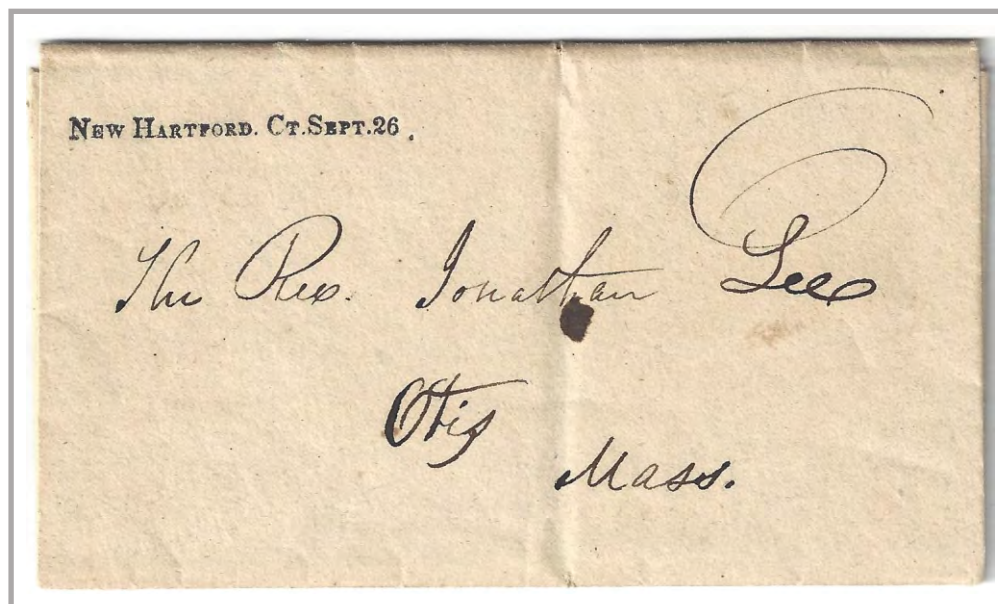 NEW HARTFORD. CT. SEPT. 26.
The Rev. Jonathan Lee
Otis
Mass.